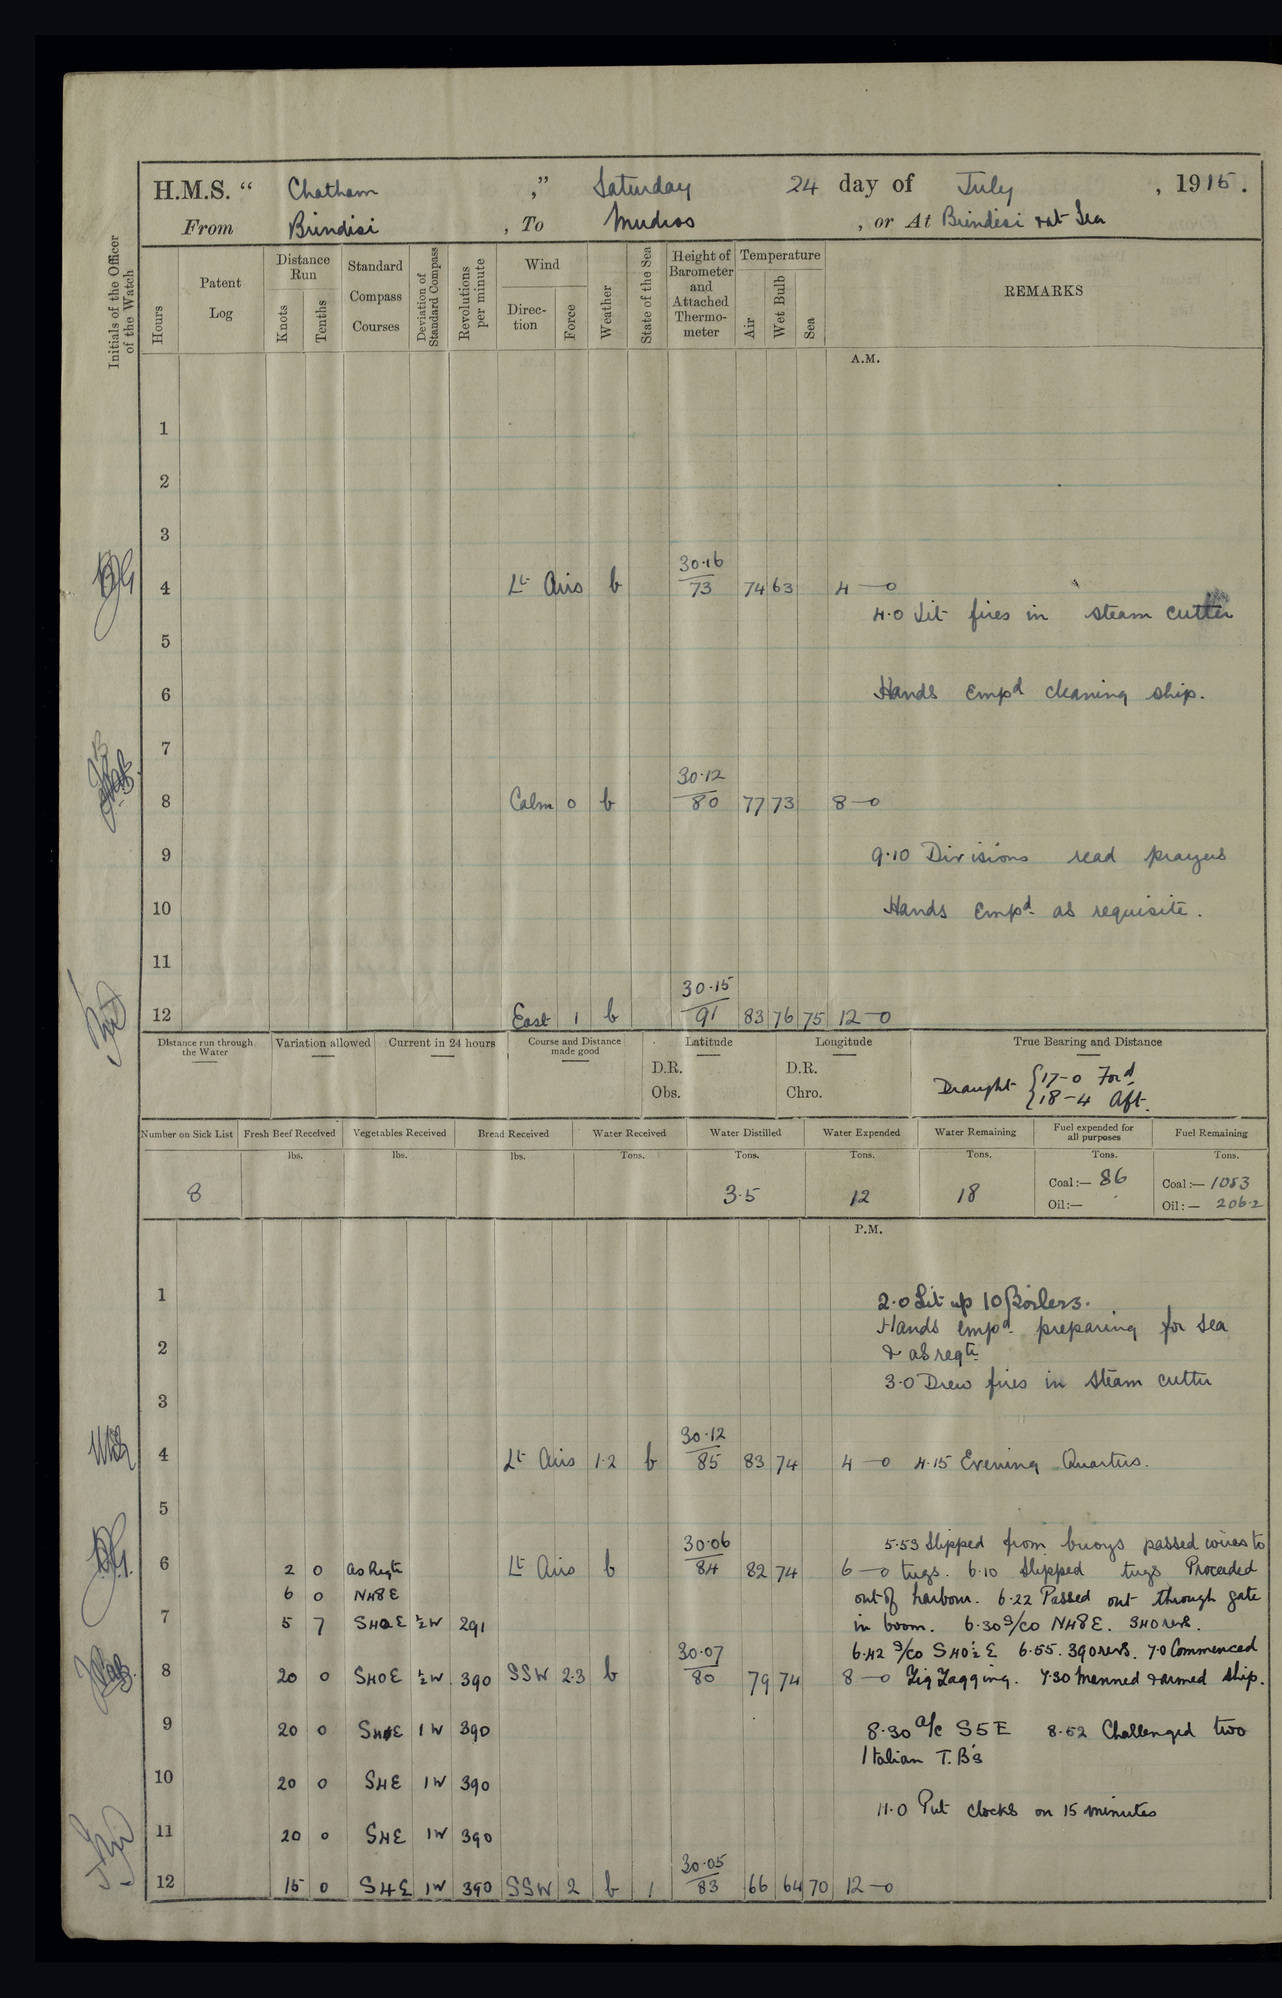 H.M.S. “ Chatham ,” Saturday 24 day of July , 1915 .
From Brindisi , To Mudros , or At Brindisi & at Sea
Initials of the Officer of the Watch
Hours
Patent Log
Distance Run
Knots
Tenths
Standard Compass Courses
Deviation of Standard Compass
Revolutions per minute
Wind
Direction
Force
Weather
State of the Sea
Height of Barometer and Attached Thermometer
Temperature
Air
Wet Bulb
Sea
REMARKS
A.M.
1
2
3
4 Lt Airs b 30.16 / 73 74 63 4—0
4.0 Lit fires in steam cutter
5
6 Hands Empd cleaning ship.
7
8 Calm 0 b 30.12 / 80 77 73 8—0
9 9.10 Divisions read prayers
10 Hands Empd as requisite.
11
12 East 1 b 30.15 / 91 83 76 75 12—0
Distance run through the Water
Variation allowed
Current in 24 hours
Course and Distance made good
Latitude
D.R.
Obs.
Longitude
D.R.
Chro.
True Bearing and Distance
Draught { 17-0 Ford
{ 18-4 Aft.
Number on Sick List
Fresh Beef Received
Vegetables Received
Bread Received
Water Received
Water Distilled
Water Expended
Water Remaining
Fuel expended for all purposes
Fuel Remaining
lbs. lbs. lbs. Tons. Tons. Tons. Tons. Tons. Tons.
8 3.5 12 18 Coal:— 86 Coal:— 1083
Oil:— Oil:— 206.2
P.M.
1 2.0 Lit up 10 Boilers.
Hands empd preparing for sea
2 & as reqte
3.0 Drew fires in steam cutter
3
4 Lt Airs 1.2 b 30.12 / 85 83 74 4—0 4.15 Evening Quarters.
5
5.53 Slipped from buoys passed wires to
6 2 0 as Reqte Lt Airs b 30.06 / 84 82 74 6—0 tugs. 6.10 Slipped tugs Proceeded
6 0 N48E out of harbour. 6.22 Passed out through gate
7 5 7 S40E ½W 291 in boom. 6.30 S/Co N48E. 340 revs.
6.42 S/Co S40½E 6.55. 390 revs. 7.0 Commenced
8 20 0 S40E ½W 390 SSW 2.3 b 30.07 / 80 79 74 8—0 Zig Zagging. 7.30 Manned & armed ship.
9 20 0 S4E 1W 390 8.30 A/C S5E 8.52 Challenged two
Italian T.B's
10 20 0 S4E 1W 390
11.0 Put clocks on 15 minutes
11 20 0 S4E 1W 390
12 15 0 S4E 1W 390 SSW 2 b 1 30.05 / 83 66 64 70 12—0